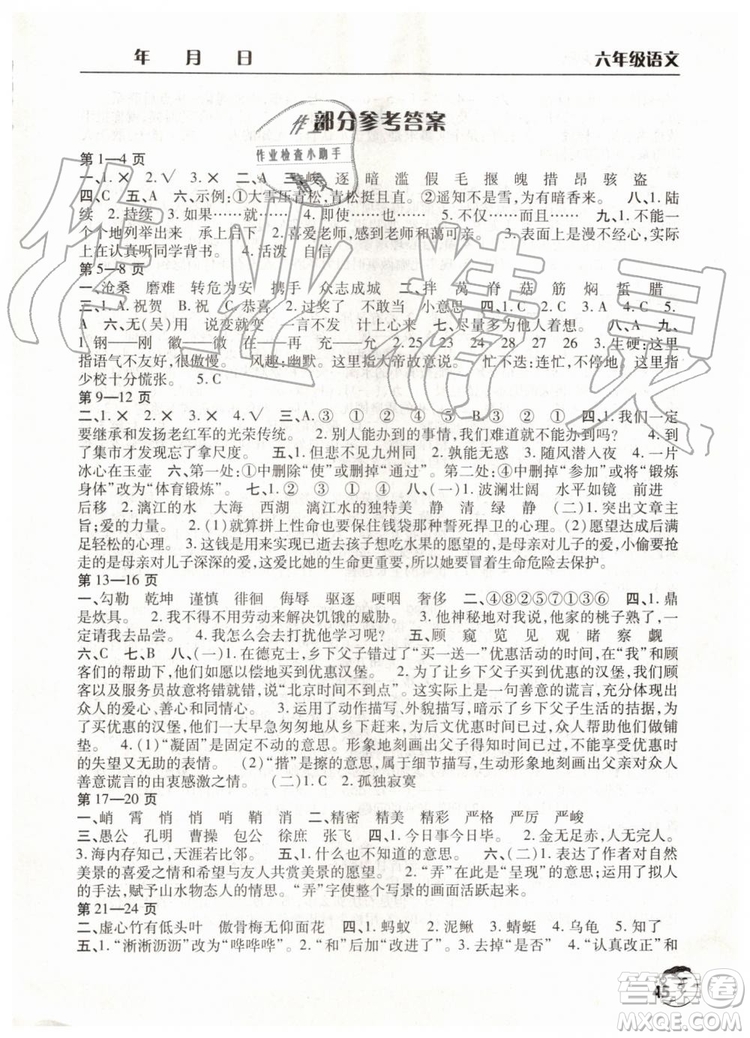 年 月 日 六年级语文
部分参考答案
作业检查小助手
第1—4页
一、1.× 2.√ 3.× 二、A 三、峻 逐 暗 滥 假 毛 握 魄 措 昂 骇 盗
四、C 五、A 六、示例:①大雪压青松,青松挺且直。②遥知不是雪,为有暗香来。 八、1.陆
续 2.持续 3.如果……就…… 4.即使……也…… 5.不仅……而且…… 九、1.不能一
个个地列举出来 承上启下 2.喜爱老师,感到老师和蔼可亲。 3.表面上是漫不经心,实际
上是在认真听同学背书。 4.活泼 自信
第5—8页
一、沧桑 磨难 转危为安 携手 众志成城 二、拌 莴 脊 菇 筋 焖 蜇 腊
三、1.A.祝贺 B.庆祝 C.恭喜 2.过奖了 不敢当 小意思 四、1.C 2.B 3.D 4.C 5.
A 六、无(吴)用 说变就变 十八个人来当兵 七、尽量多地帮助他人、善待他人。 九、
1.钢——刚 徽——徽 2.25 23 3.生硬:这里
指语气不好,很傲慢。 风趣:幽默。这里指大帝故意说。 忙不迭:连忙,不停地;这里指
少校十分慌张。 5.C
第9—12页
二、1.× 2.× 3.× 4.√ 三、A.③ ① ② B.③ ② ① 四、1.我们一定
要继承和发扬老红军的光荣传统。 2.别人能办到的事情,我们难道就不能办到吗? 3.到
了集市才发现忘了拿尺度。 五、1.但悲不见九州同 2. 3.随风潜入夜 4.一片
冰心在玉壶 六、第一处:①中删除“使”或删掉“通过”。第二处:②中删掉“参加”或将“锻炼
身体”改为“体育锻炼”。 七、①③②④ 八、①④②③ 九、(一)1.波澜壮阔 水平如镜 前进
后移 2.漓江的水 大海 西湖 漓江水的独特美 静 清 绿 静 (二)1.突出文章主
旨;爱的力量。 2.(1)就算拼上性命也要保住钱袋的那种誓死捍卫的心理。 (2)愿望达成后满足
轻松的心理。 3.这钱是用来实现弥留之际的逝去孩子想吃水果的愿望的,是母亲对儿子的爱
的表达,是母亲对儿子深深的爱,这爱比她的生命更重要,所以她更忘我地去保护。
第13—16页
一、勾勒 乾坤 谨慎 徘徊 侮辱 驱逐 哽咽 奢侈 二、④⑧②⑤⑦①③⑥ 四、1.鼎
是炊具。 2.我不得不用劳动来解决饥饿的威胁。 3.他神秘地对我说,他家的桃子熟了,一
定请我去品尝。 4.我怎么会去打扰他学习呢? 五、顾 窥 览 见 观 睹 察 觑
六、C 七、B 八、(一)1.在德克士,乡下父子错过了“买一送一”优惠活动的时间,在“我”和顾
客们的帮助下,他们如愿以偿地买到优惠汉堡。 2.为了让乡下父子买到优惠的汉堡,我们大家
以及服务员故意说“北京时间不到点”。这实际上是一句善意的谎言,从中可以体会到
众人的爱心、善心和同情心。 3.运用了动作描写、外貌描写,暗示了乡下父子生活的拮据,为
了买优惠的汉堡,他们一大早急匆匆地从乡下赶来,但优惠时间已过,为后文众人帮助他们做铺
垫。 4.(1)“凝固”是固定不动的意思。形象地刻画出父子听说优惠时间已过,买不到优惠汉堡时
的失望又无助的表情。 (2)“揩”是擦的意思。形象地刻画出乡下父子对众人帮助以及众人
善意谎言的由衷感激之情。 (二)1.C 2.孤独寂寞
第17—20页
一、峭 霄 悄 俏 哨 消 鞘 二、精密 精美 精彩 严格 严厉 严峻
三、愚公 孔明 曹操 包公 徐庶 张飞 四、1.今日事今日毕。 2.金无足赤,人无完人。
3.海内存知己,天涯若比邻。 五、1.什么也不知道的意思。 六、(二)1.表达了作者对自然
美景的喜爱之情和愿与友人共赏美景的愿望。 2.“弄”在此是“呈现”的意思。运用了拟人
的手法,赋予山水物态人的情思。“弄”字使整个写景的画面活跃起来。
第21—24页
二、虚心竹有低头叶 傲骨梅无仰面花 四、1.蚂蚁 2.泥鳅 3.蜻蜓 4.乌龟 五、D
六、1.“淅淅沥沥”改为“哗哗哗”。 2.“和”后加“解决” 3.去掉“是否” 4.“认真改正”和
45
答案圈
作业精灵